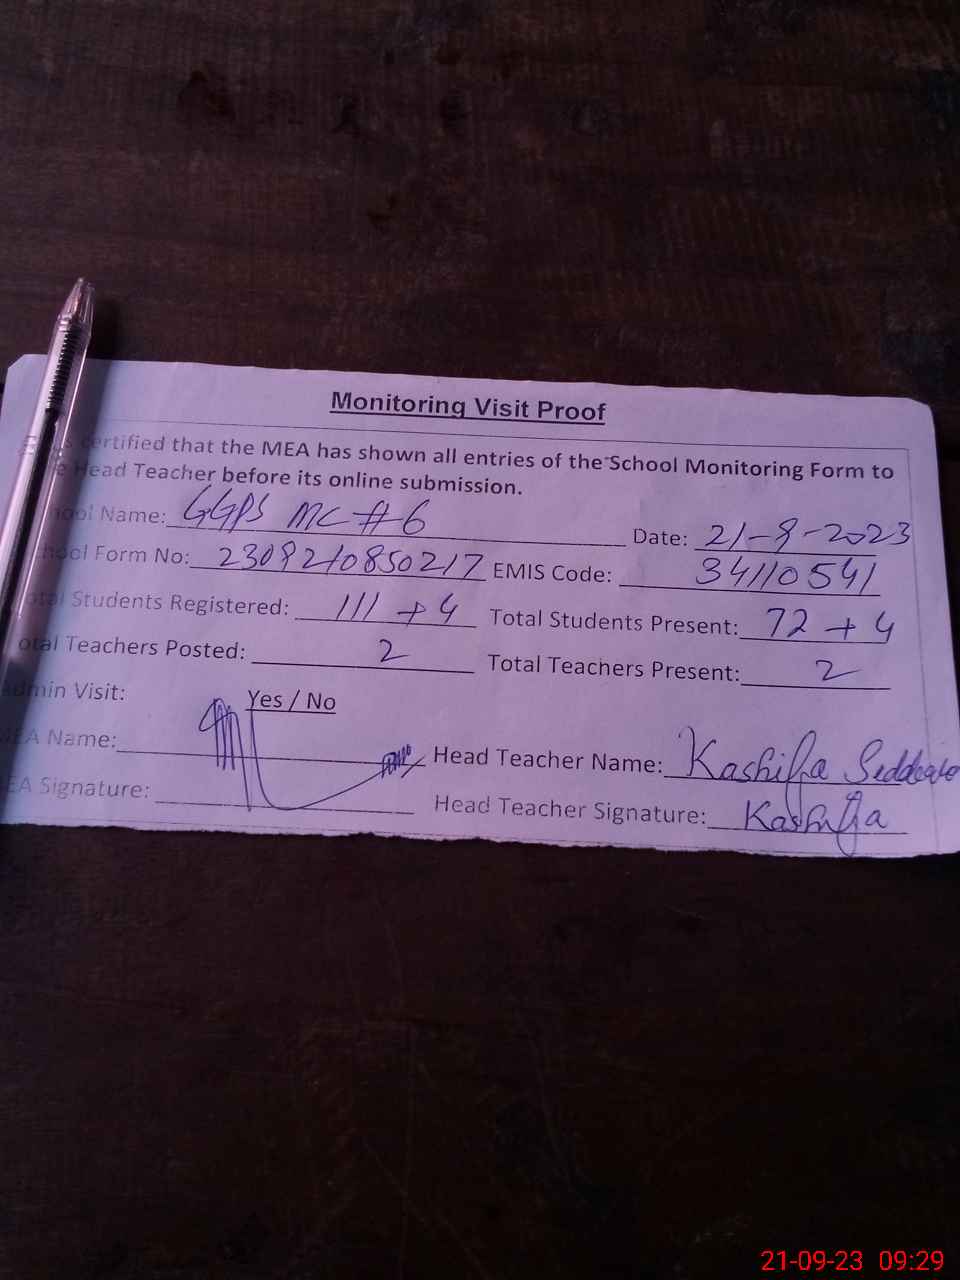 Monitoring Visit Proof
certified that the MEA has shown all entries of the School Monitoring Form to
Head Teacher before its online submission.
School Name: GGPS MC #6 Date: 21-9-2023
School Form No: 2309210850217 EMIS Code: 34110541
Total Students Registered: 111 + 4 Total Students Present: 72 + 4
Total Teachers Posted: 2 Total Teachers Present: 2
Admin Visit: Yes / No
MEA Name: Head Teacher Name: Kashifa
MEA Signature: Head Teacher Signature: Kashifa
21-09-23 09:29